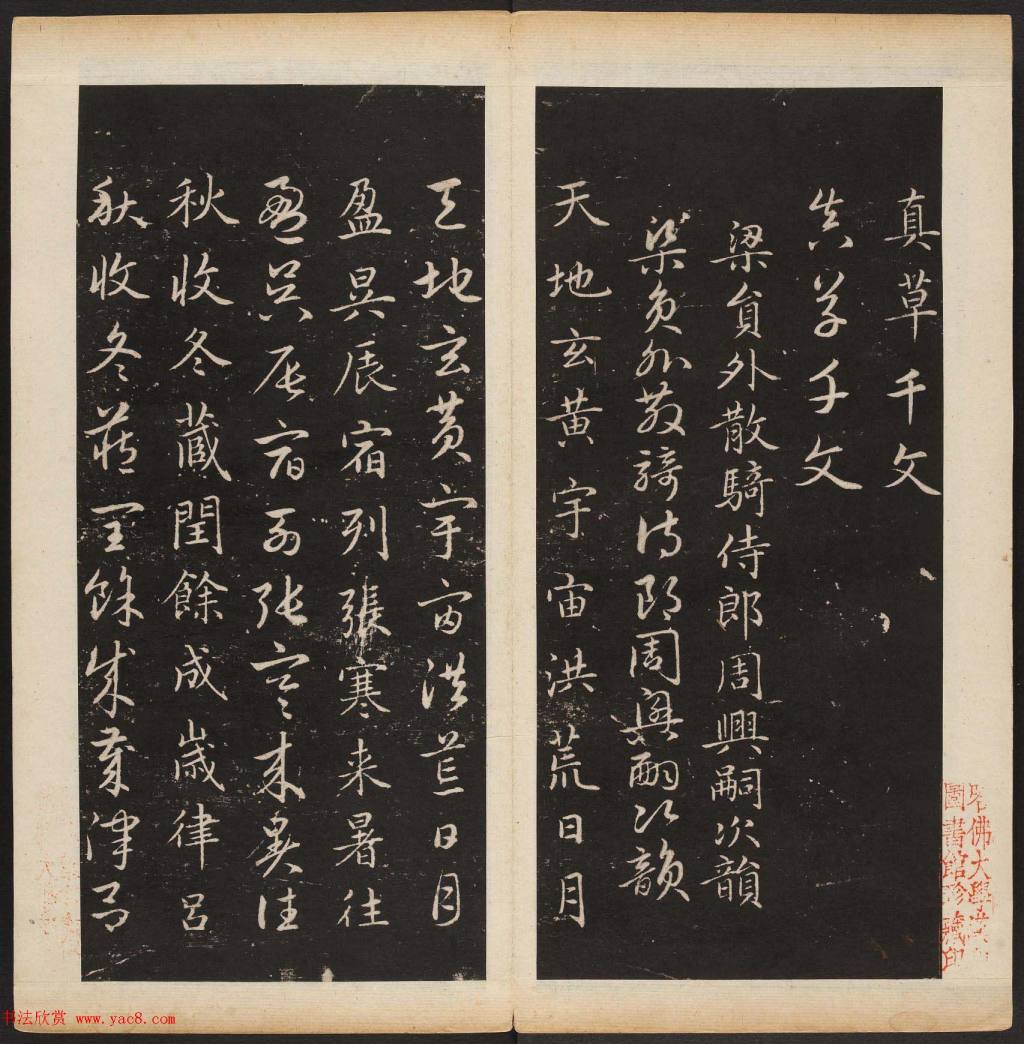 真草千文
真草千文
梁員外散騎侍郎周興嗣次韻
梁員外散騎侍郎周興嗣次韻
天地玄黃宇宙洪荒日月
天地玄黃宇宙洪荒日月
盈昃辰宿列張寒来暑往
盈昃辰宿列張寒来暑往
秋收冬藏閏餘成歲律呂
秋收冬藏閏餘成歲律呂
哈佛大學
圖書館珍藏印
书法欣赏 www.yac8.com